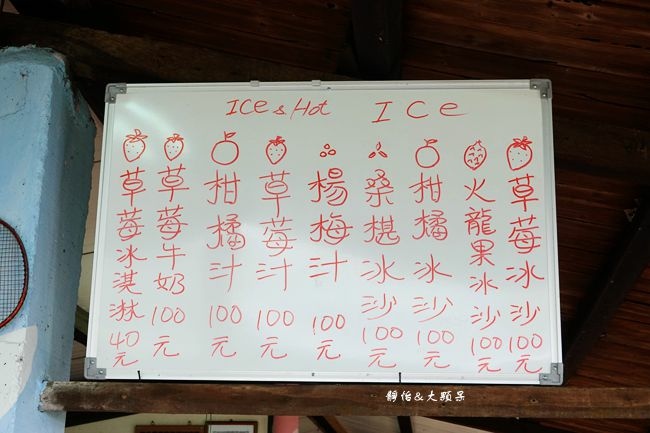 ICe & Hot ICe
草莓冰沙100元
火龍果冰沙100元
柑橘冰沙100元
桑椹冰沙100元
楊梅汁100元
草莓汁100元
柑橘汁100元
草莓牛奶100元
草莓冰淇淋40元
靜怡&大顆呆